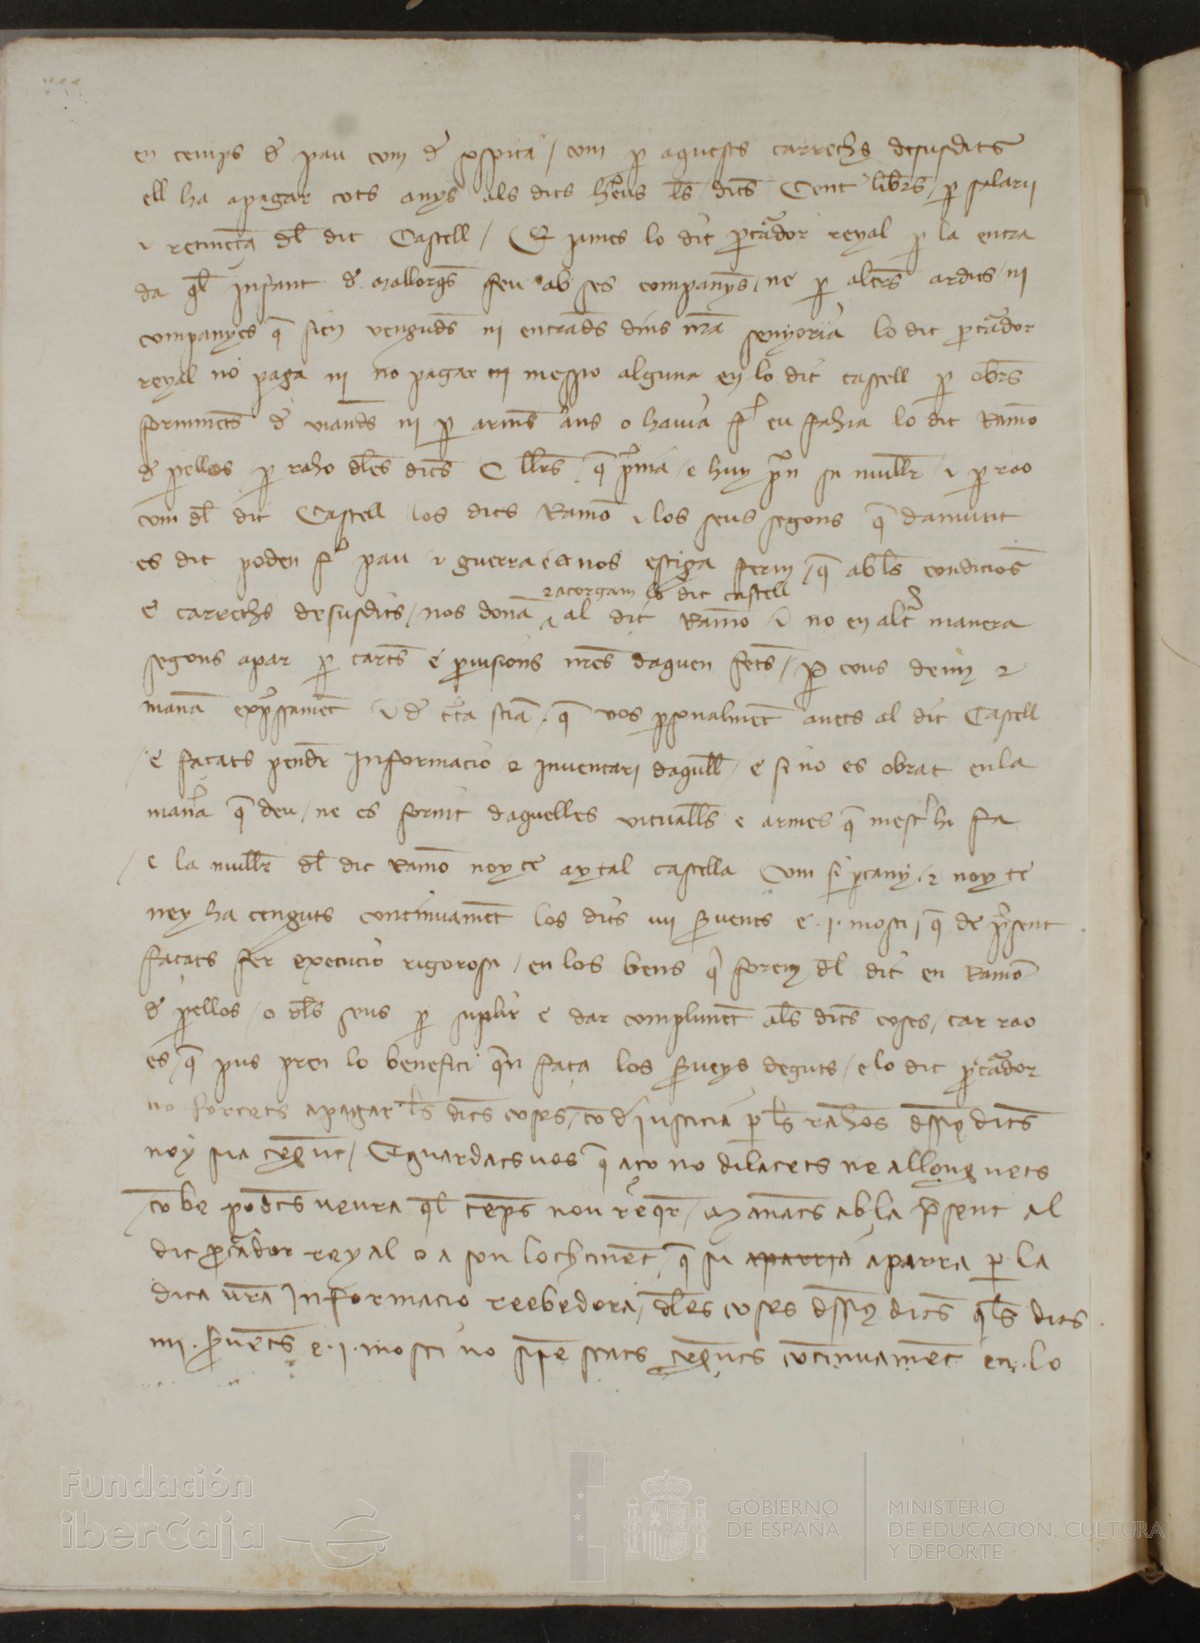 en temps de pau com de sospita / com per aquests carrechs desusdits
ell ha apagar tots anys als dits hereus les dites Cent libres / per salari
e retinença del dit Castell / E james lo dit procurador reyal per la entra
da quel Infant de Mallorqs feu ab ses companyes / ne per altres ardits / ni
companyes que sien vengudes ni entrades dins nra senyoria lo dit procurador
reyal no paga ni no pagar messio alguna en lo dit castell per obres
forniments de viandes ni per armes ans o havia fer en fahia lo dit Ramon
de perellos / per raho deles dites C llrs / que prenia / e huy pren sa muller / e per rao
com del dit Castell los dits Ramon e los seus segons que damunt
es dit poden fer pau e guerra e a nos estiga ferm / que ables condicions
e atorgam lo dit castell
e carrechs desusdits / nos donam al dit Ramon e no en altra manera
segons apar per cartes e provisions nres daquen fetes / per ço us dehim e
manam expressament e de certa sciencia / que vos personalment anets al dit Castell
e façats pendre Informacio e inventari daquell / e si no es obrat en la
manera que deu / ne es fornit daquelles vitualles e armes que mester hi fa
e la muller del dit Ramon noy te aytal castella Com si pertany / e noy te
ney ha tenguts continuament los dits IIII servents e .I. mosti / que de present
façats fer execucio rigorosa / en los bens que foren del dit en Ramon
de perellos / o dels seus per suplir e dar compliment ales dites coses / car rao
es / que pus pren lo benefici quen faça los serveys deguts / e lo dit procurador
no forcets apagar les dites coses / com de justicia per les rahons dessus dites
noy sia tengut / E guardats vos que aço no dilatets ne allonguets
com be podets veura quel temps nou requer / Manants ab la present al
dit procurador reyal o a son lochtinent / que si aparria aparra per la
dita vra Informacio reebedora / deles coses dessus dites quels dits
IIII. servents e .I. mosti no sien stats tenguts continuament en lo
Fundación
iberCaja
GOBIERNO
DE ESPAÑA
MINISTERIO
DE EDUCACIÓN, CULTURA
Y DEPORTE